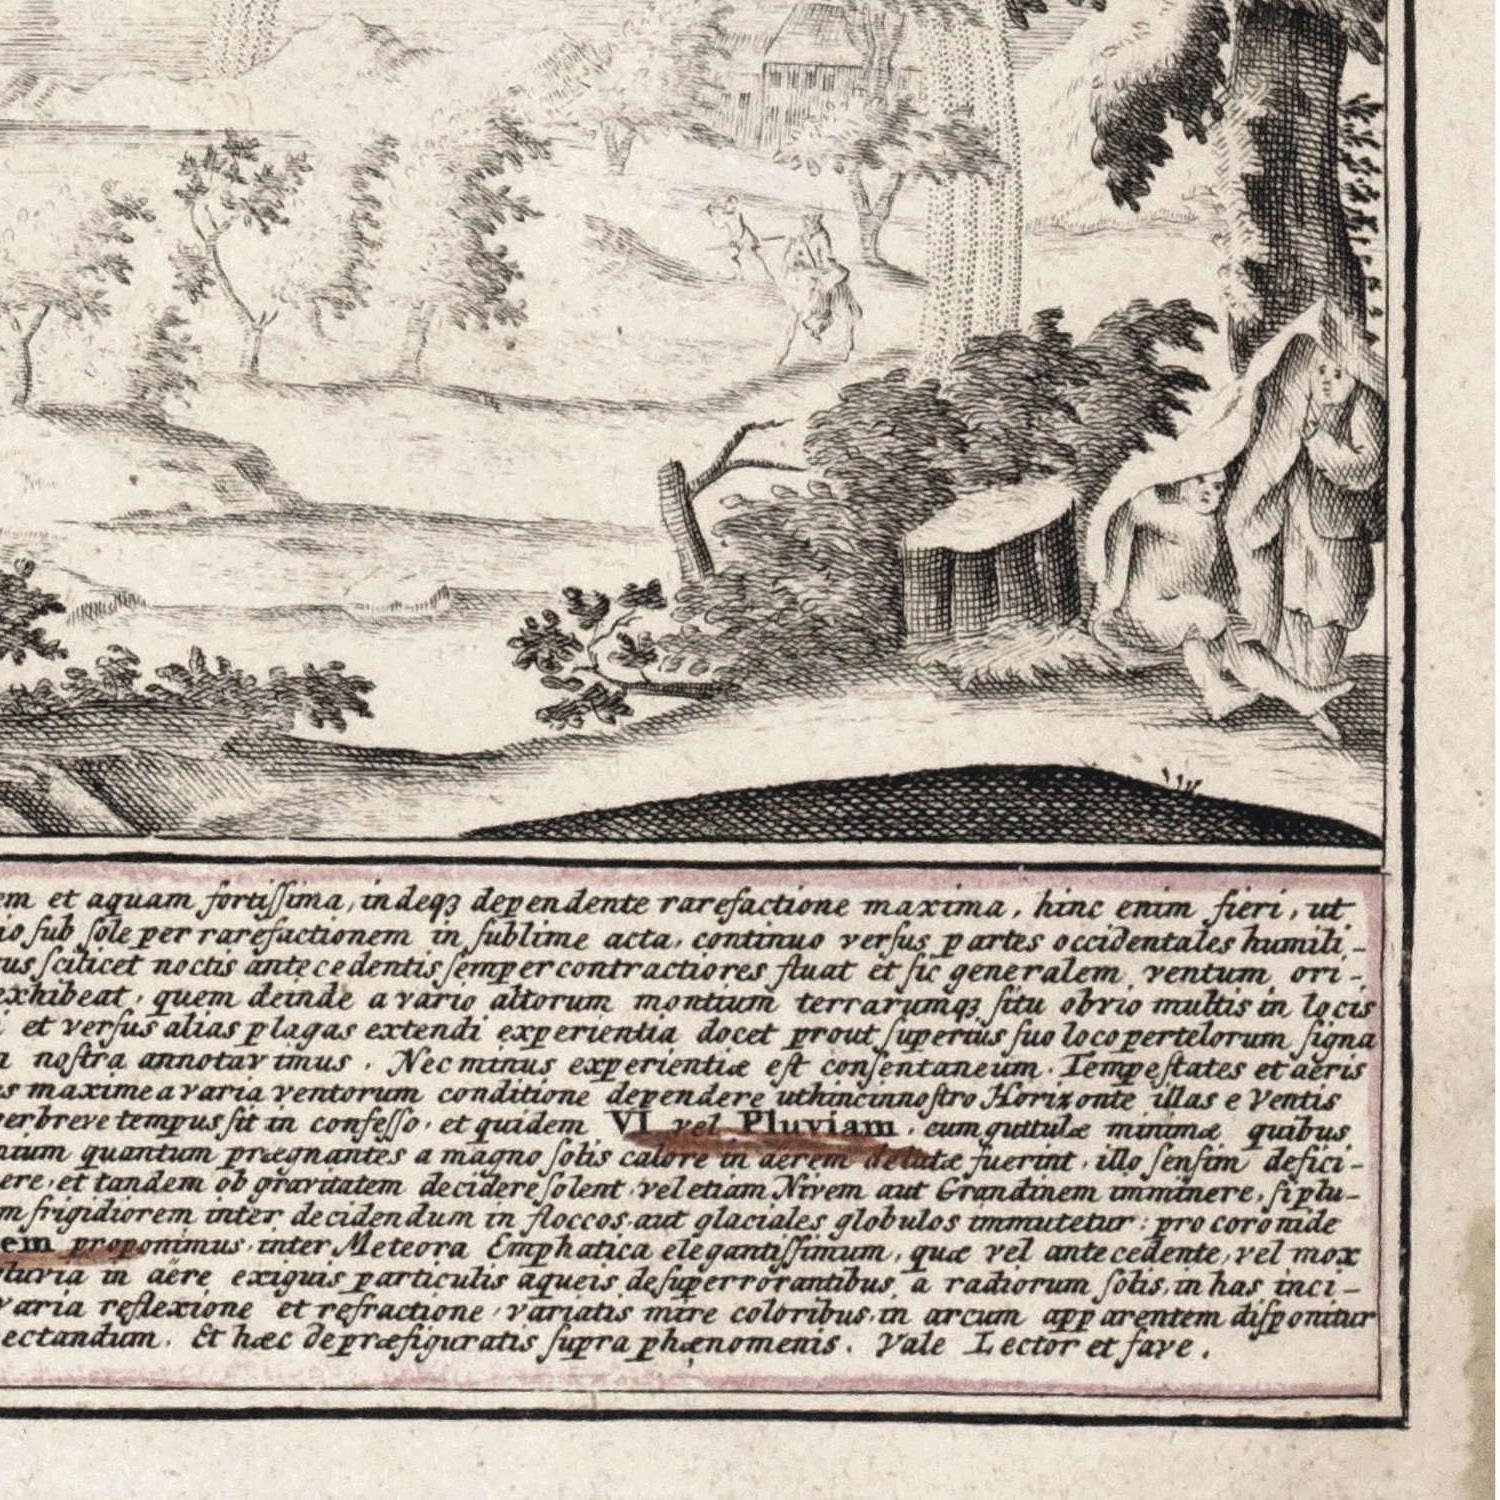 em et aquam fortiſſima, indeqꝫ dependente rarefactione maxima, hinc enim fieri, ut
io ſub ſole per rarefactionem in ſublime acta, continuo verſus partes occidentales humili-
us ſcilicet noctis antecedentis ſemper contractiores fluat et ſic generalem ventum ori-
exhibeat, quem deinde a vario altorum montium terrarumqꝫ ſitu obvio multis in locis
et verſus alias plagas extendi experientia docet prout ſuperiùs ſuo loco per telorum ſigna
noſtra annotavimus. Nec minus experientiæ eſt conſentaneum. Tempeſtates et aëris
s maxime a varia ventorum conditione dependere ut hinc in noſtro Horizonte illas e Ventis
per breve tempus ſit in confeſſo, et quidem VI vel Pluviam, cum guttulæ minimæ quibus
nium quantum prægnantes a magno ſolis calore in aerem delatæ fuerint, illo ſenſim defici-
ere, et tandem ob gravitatem decidere ſolent, vel etiam Nivem aut Grandinem imminere, ſi plu-
m frigidiorem inter decidendum in floccos aut glaciales globulos immutetur: pro coronide
em proponimus inter Meteora Emphatica elegantiſſimum, quæ vel antecedente, vel mox
pluvia in aëre exiguis particulis aqueis deſuper rorantibus, a radiorum ſolis, in has inci-
varia reflexione et refractione, variatis mire coloribus, in arcum apparentem diſponitur
ectandum. Et hæc de præfiguratis ſupra phænomenis. Vale Lector et fave.